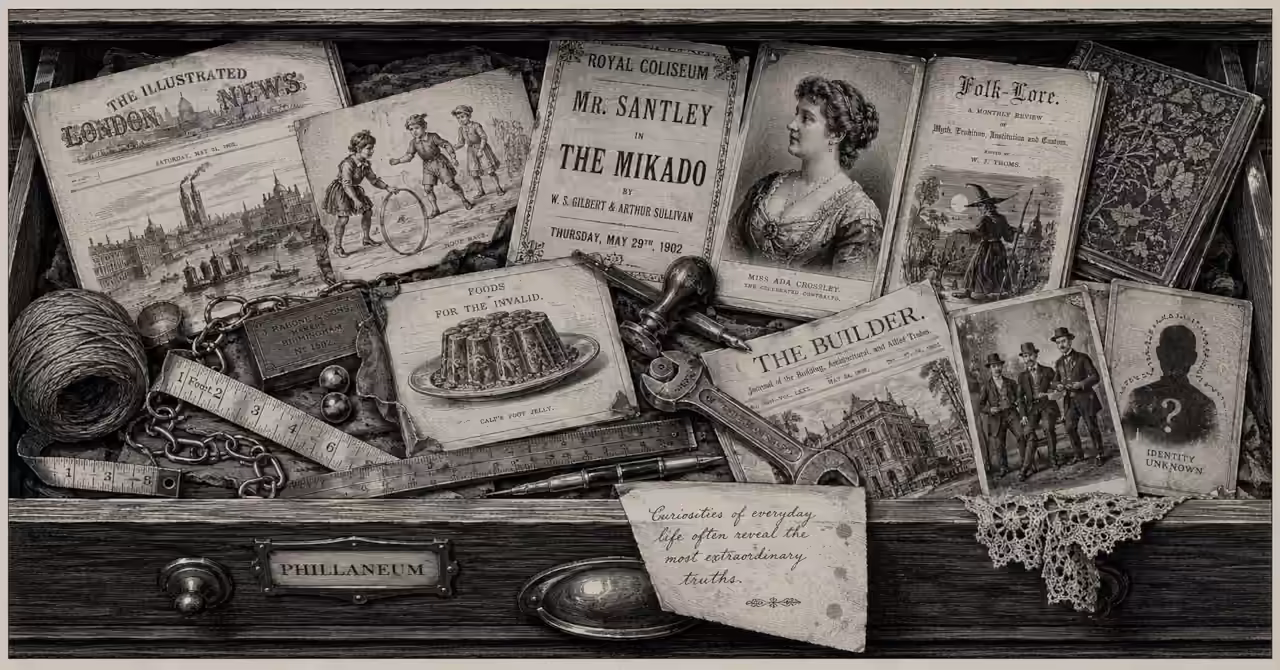 THE ILLUSTRATED
LONDON NEWS
SATURDAY, MAY 31, 1902.
ROYAL COLISEUM
MR. SANTLEY
IN
THE MIKADO
BY
W. S. GILBERT & ARTHUR SULLIVAN
THURSDAY, MAY 29TH, 1902
MISS ADA CROSSLEY.
THE CELEBRATED CONTRALTO.
Folk-Lore.
A MONTHLY REVIEW
OF
Myth, Tradition, Institution and Custom.
EDITED BY
W. J. THOMS.
SONS,
BIRMINGHAM
No 1902.
FOODS
FOR THE INVALID.
CALF'S FOOT JELLY.
THE BUILDER.
Journal of the Building, Architectural, and Allied Trades.
IDENTITY
UNKNOWN
1 Foot 2 3 4 6
1 3 8
PHILLANEUM
Curiosities of everyday
life often reveal the
most extraordinary
truths.
?